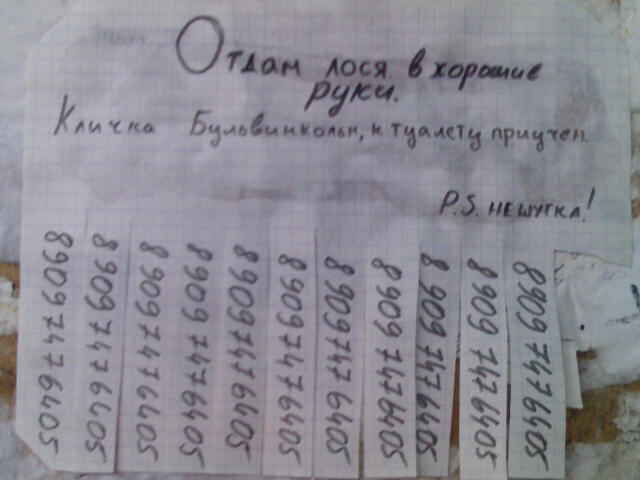 Отдам лося в хорошие
руки.
Кличка Бульвинкольн, к туалету приучен.
P.S. не шутка!
89097476405
89097476405
89097476405
89097476405
89097476405
89097476405
89097476405
89097476405
89097476405
89097476405
89097476405